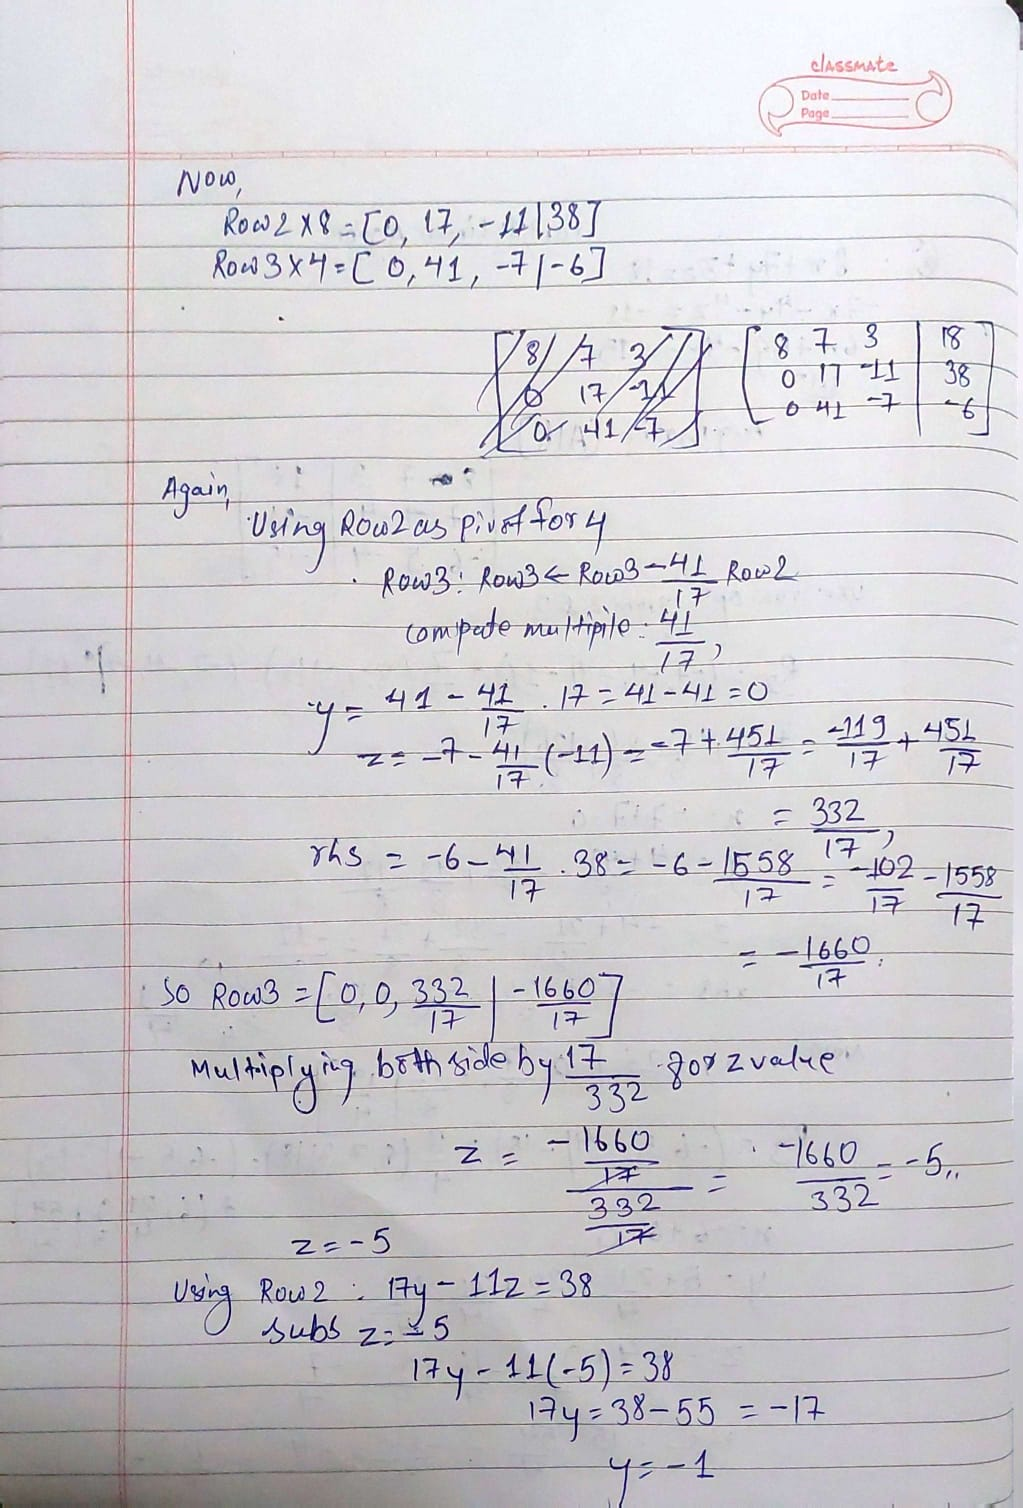 classmate
Date
Page
Now,
Row2×8=[0, 17, -11|38]
Row3×4=[0,41, -7|-6]
8 7 3
0 17 -11
0 41 -7
8 7 3 | 18
0 17 -11 | 38
0 41 -7 | -6
Again,
Using Row2 as pivot for y
Row3: Row3 ← Row3 - 41/17 Row2
compute multiple: 41/17,
y = 41 - 41/17 . 17 = 41-41 = 0
z = -7 - 41/17 (-11) = -7 + 451/17 = -119/17 + 451/17
= 332/17,
rhs = -6 - 41/17 . 38 = -6 - 1558/17 = -102/17 - 1558/17
= -1660/17.
So Row3 = [0, 0, 332/17 | -1660/17]
Multiplying both side by 17/332 for z value
z = -1660/17 / 332/17 = -1660/332 = -5,,
z = -5
Using Row2 : 17y - 11z = 38
subs z = -5
17y - 11(-5) = 38
17y = 38 - 55 = -17
y = -1